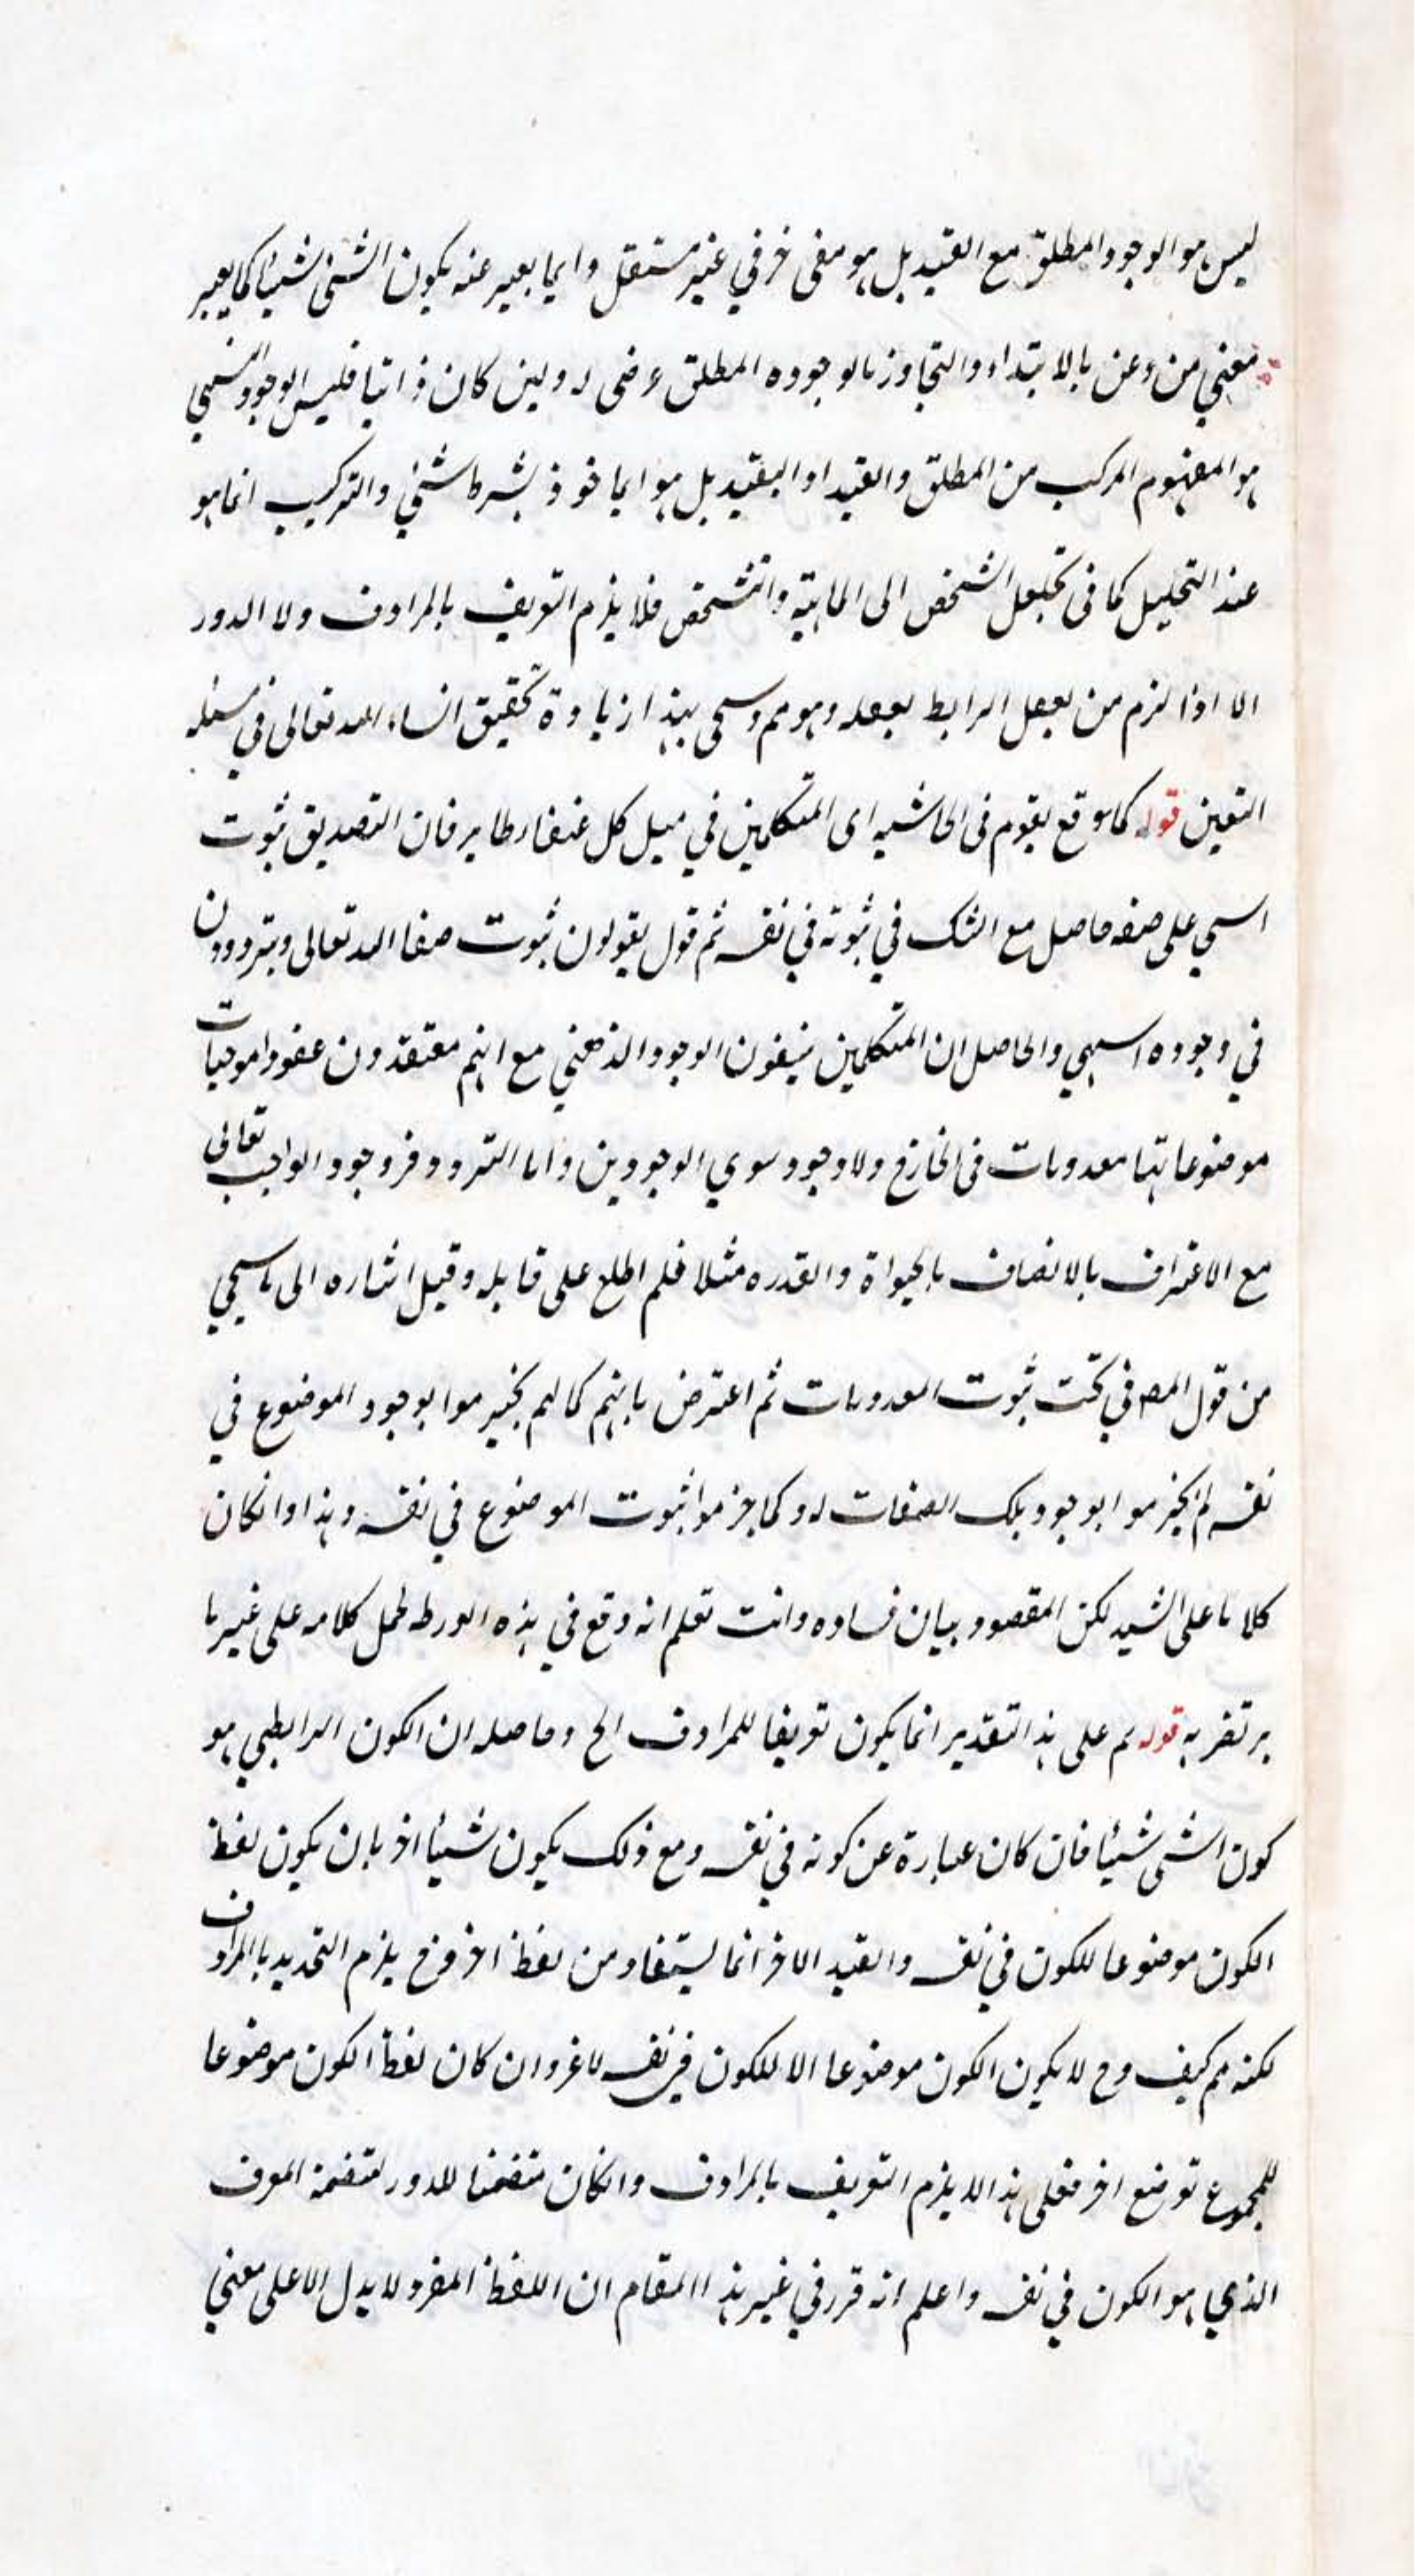 ليس هو الوجود المطلق مع القيد بل هو معنى حرفي غير مستقل وانما يعبر عنه بكون الشئ شيئا كما يعبر
معنى من وعن بالابتداء والتجاوز بالوجوده المطلق عرضى له ولين كان ذاتيا فليس الوجود النسبي
هو المفهوم المركب من المطلق والقيد او التقييد بل هو الماخوذ بشرط شئ والتركيب انما هو
عند التحليل كما فى تحليل الشخص الى الماهية والتشخص فلا يلزم التعريف بالمرادف ولا الدور
الا اذا لزم من تعقل الرابط تعقله وهو مم وسيجى لهذا زيادة تحقيق انشاء الله تعالى في مسئله
التعين قوله كما وقع لقوم فى الحاشيه اى المتكلمين في كل فان التصديق ثبوت
على صفه حاصل مع الشك في ثبوته في نفسه ثم قول يقولون ثبوت صفا الله تعالى ويترددون
في وجوده والحاصل ان المتكلمين ينفون الوجود الذهني مع انهم معتقدون عقودا موجبات
موضوعاتها معدومات فى الخارج ولا وجود سوي الوجودين واما التردد فى وجود الواجب تعالى
مع الاعتراف بالاتصاف بالحيواة والقدره مثلا فلم اطلع على قايله وقيل اشاره الى ما سيجي
من قول المص في تحت ثبوت المعدومات ثم اعترض بانهم كما لم يجزموا بوجود الموضوع في
نفسه لم يجزموا بوجود تلك الصفات له وكما جزموا ثبوت الموضوع في نفسه وهذا وانكان
كلاما على السيد لكن المقصود بيان فساده وانت تعلم انه وقع في هذه الورطه لحمل كلامه على غير ما
يرتضر به قوله ثم على هذا التقدير انما يكون تعريفا للمرادف الخ وحاصله ان الكون الرابطي هو
كون الشئ شيئا فان كان عبارة عن كونه في نفسه ومع ذلك يكون شيئا اخر بان يكون لفظ
الكون موضوعا للكون في نفسه والقيد الاخر انما يستفاد من لفظ اخر فح يلزم التحديد بالمرادف
لكنه مم كيف وح لا يكون الكون موضوعا الا للكون فى نفسه لا غر وان كان لفظ الكون موضوعا
للمجموع توضع اخر فعلى هذا لا يلزم التعريف بالمرادف وانكان متضمنا للدور لتضمنه المعرف
الذي هو الكون في نفسه واعلم انه قرر في غير هذا المقام ان اللفظ المفرد لا يدل الا على معنى